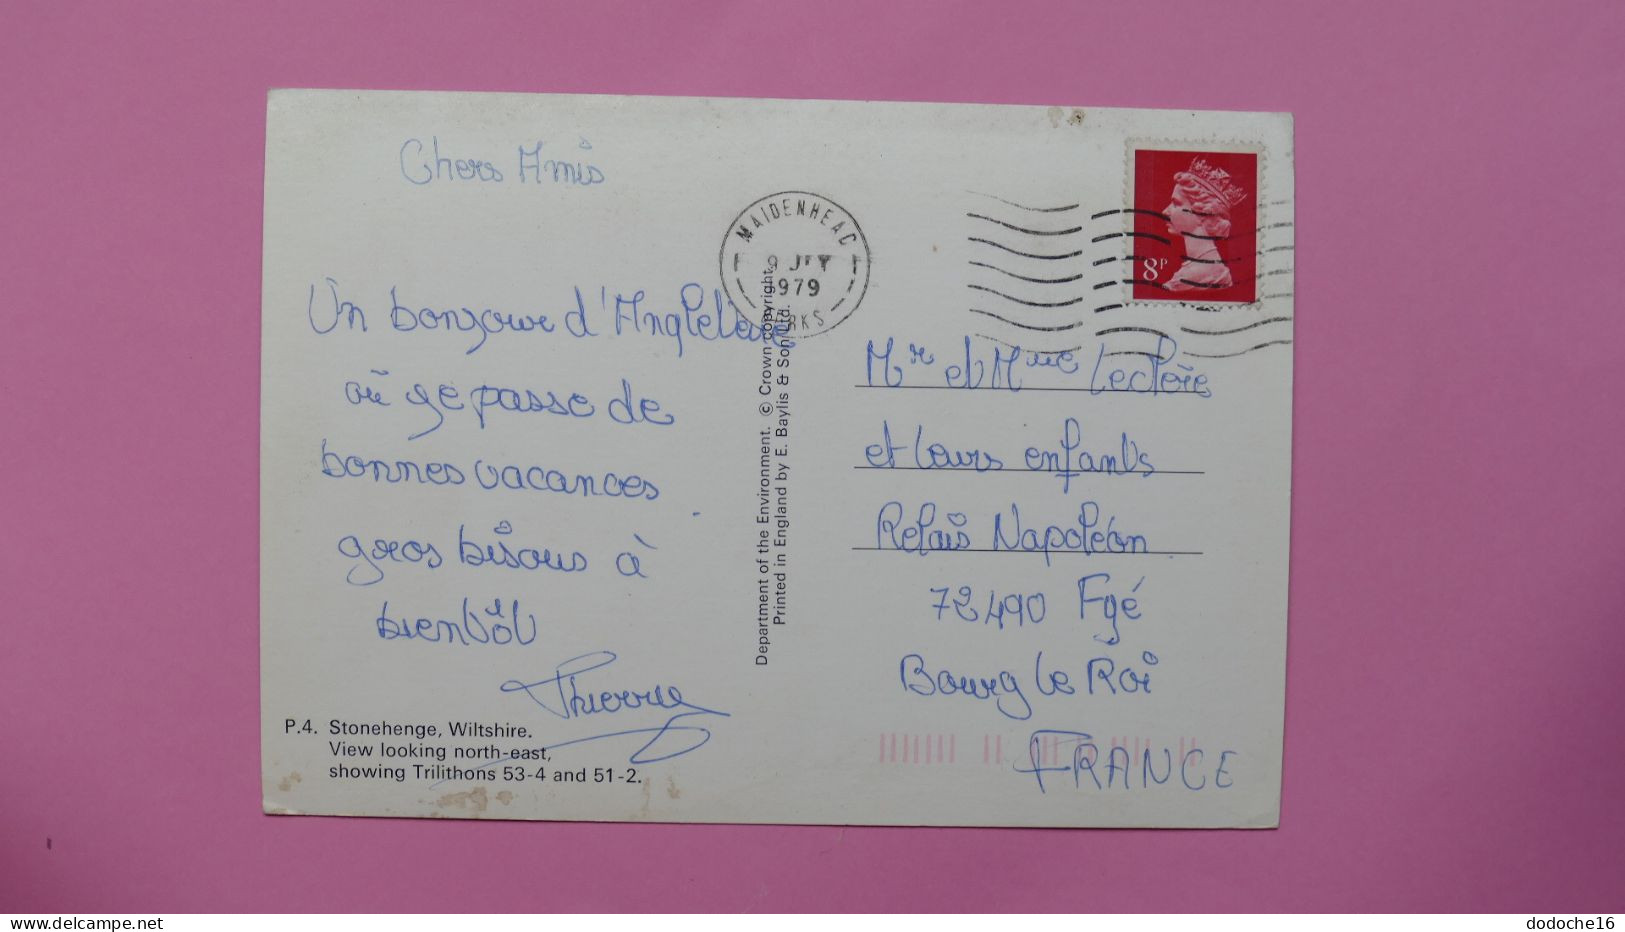 Chers Amis
Un bonjour d'Angleterre
où je passe de
bonnes vacances
gros bisous à
bientôt
Thierry
P.4. Stonehenge, Wiltshire.
View looking north-east,
showing Trilithons 53-4 and 51-2.
Department of the Environment. © Crown copyright.
Printed in England by E. Baylis & Son Ltd.
MAIDENHEAD
9 JLY
1979
BERKS
8P
Mr et Mme Leclère
et leurs enfants
Relais Napoléon
72490 Fyé
Bourg le Roi
FRANCE
www.delcampe.net
dodoche16